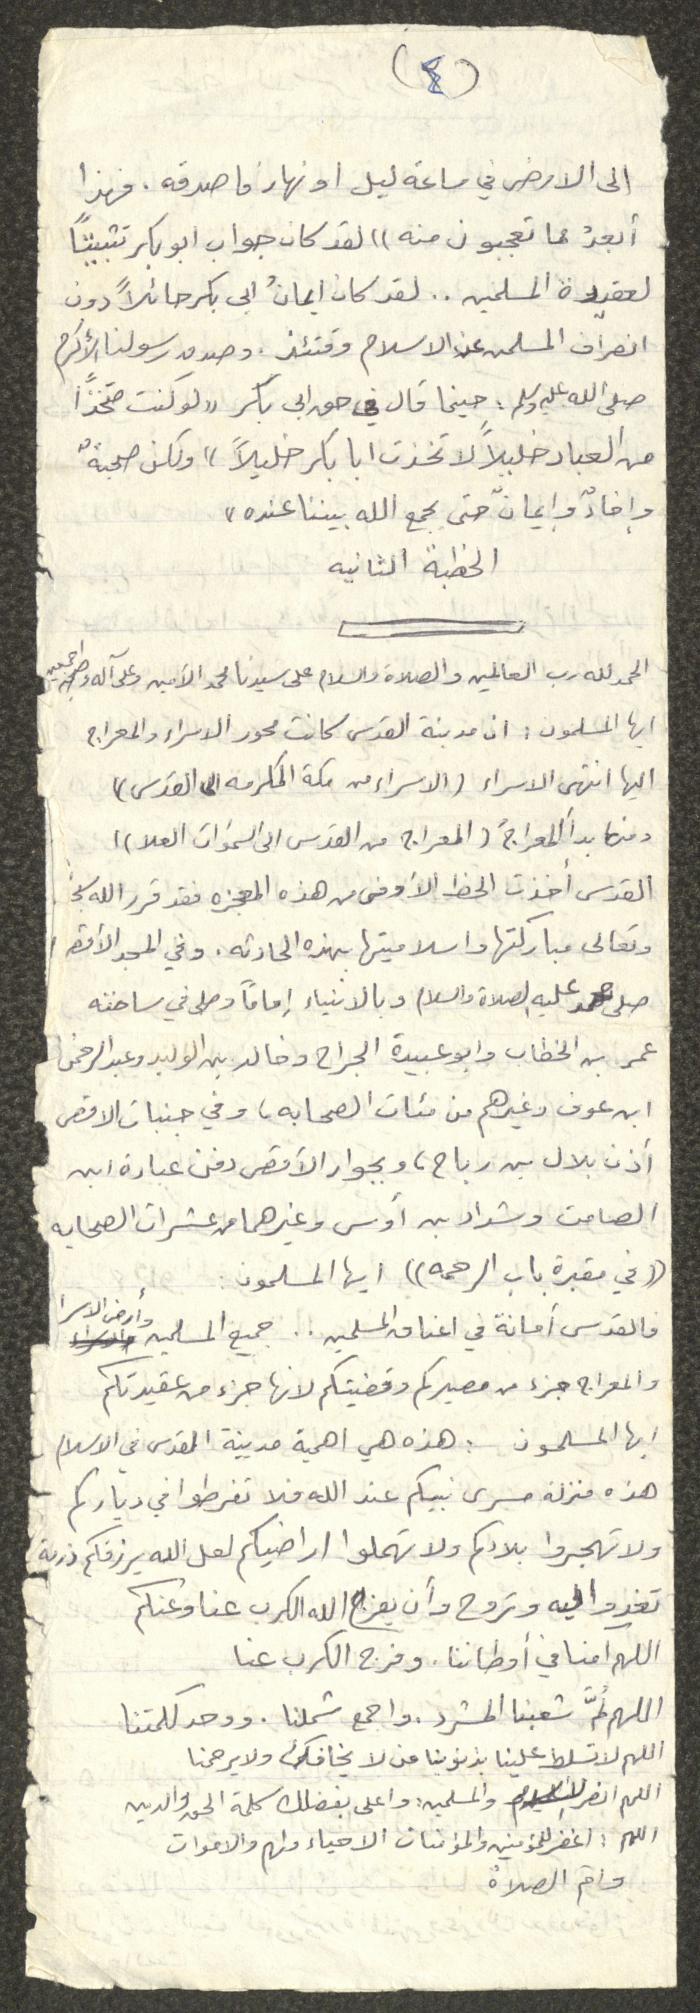 (٤)
الى الارض في ساعة ليل او نهار فاصدقه . فهذا
أبعدُ مما تعجبون منه )) لقد كان جواب ابو بكر تثبيتاً
لعقيدة المسلمين .. لقد كان ايمانُ ابى بكر حائلاً دون
انصراف المسلمين عن الاسلام وقتئذ . وصدق رسولنا الأكرم
صلى الله عليه وسلم : حينما قال في حق ابى بكر (( لو كنت متخذاً
من العباد خليلاً لاتخذت ابا بكر خليلاً )) ولكن صحبةٌ
وإخاءٌ وإيمانٌ حتى يجمع الله بيننا عنده ))
الخطبة الثانيه
الحمد لله رب العالمين والصلاة والسلام على سيدنا محمد الأمين وعلى آله وصحبه اجمعين
ايها المسلمون : ان مدينة القدس كانت محور الاسراء والمعراج
اليها انتهى الاسراء ( الاسراء من مكة المكرمه الى القدس ))
ومنها بدأ المعراج ( المعراج من القدس الى السموات العلا ))
القدس أخذت الحظ الأوفى من هذه المعجزه فقد قرر الله سبحا
وتعالى مباركتها واسلاميتها بهذه الحادثه . وفي المسجد الأقصى
صلى محمد عليه الصلاة والسلام وبالانبياء إماماً وصلى في ساحته
عمر بن الخطاب وابو عبيدة الجراح وخالد بن الوليد وعبد الرحمن
ابن عوف وغيرهم من مئات الصحابه ، وفي جنبات الاقصى
أذن بلال بن رباح ، وبجوار الأقصى دفن عبادة ابن
الصامت وشداد بن أوس وغيرهما من عشرات الصحابه
(( في مقبرة باب الرحمه )) ايها المسلمون :
فالقدس أمانة في اعناق المسلمين .. جميع المسلمين وأرض الاسرا
والمعراج جزء من مصيركم وقضيتكم لانها جزء من عقيدتكم
ايها المسلمون : هذه هي اهمية مدينة القدس في الاسلام
هذه منزلة مسرى نبيكم عند الله فلا تفرطوا في دياركم
ولا تهجروا بلادكم ولا تهملوا اراضيكم لعل الله يرزقكم ذرية
تغدوا اليه وتروح وأن يفرج الله الكرب عنا وعنكم
اللهم امنا في أوطاننا . وفرج الكرب عنا
اللهم لُمَّ شعبنا المشرد . واجمع شملنا . ووحد كلمتنا
اللهم لا تسلط علينا بذنوبنا من لا يخافك ولا يرحمنا
اللهم انصر الاسلام والمسلمين : واعلى بفضلك كلمة الحق والدين
اللهم : اغفر للمؤمنين والمؤمنات الاحياء منهم والاموات
واقم الصلاة